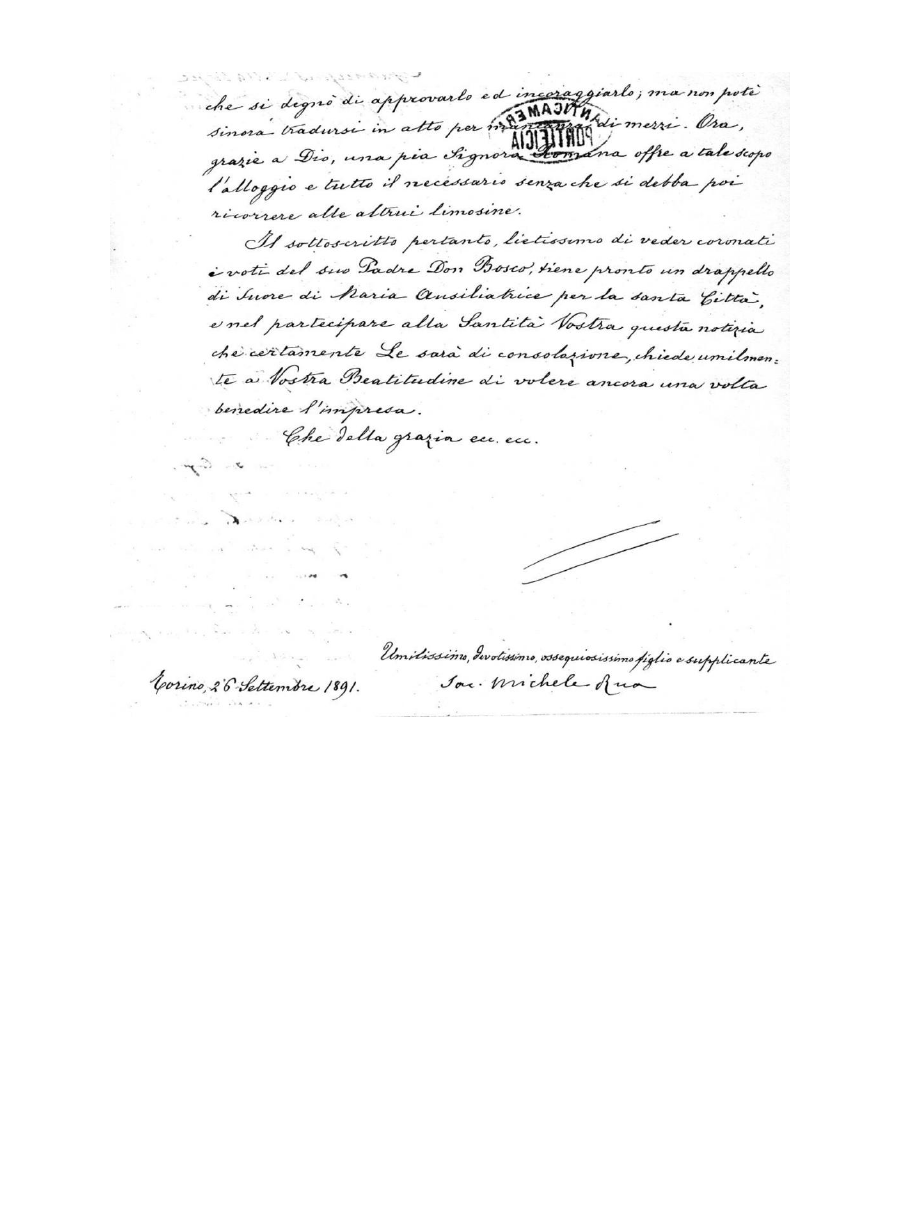 che si degnò di approvarlo ed incoraggiarlo; ma non potè
sinora tradursi in atto per mancanza di mezzi. Ora,
ANTICAMERA
PONTIFICIA
grazie a Dio, una pia Signora Romana offre a tale scopo
l'alloggio e tutto il necessario senza che si debba poi
ricorrere alle altrui limosine.
Il sottoscritto pertanto, lietissimo di veder coronati
i voti del suo Padre Don Bosco, tiene pronto un drappello
di Suore di Maria Ausiliatrice per la santa Città,
e nel partecipare alla Santità Vostra questa notizia
che certamente Le sarà di consolazione, chiede umilmen=
te a Vostra Beatitudine di volere ancora una volta
benedire l'impresa.
Che della grazia ecc. ecc.
Umilissimo, devotissimo, ossequiosissimo figlio e supplicante
Torino, 26 Settembre 1891. Sac. Michele Rua